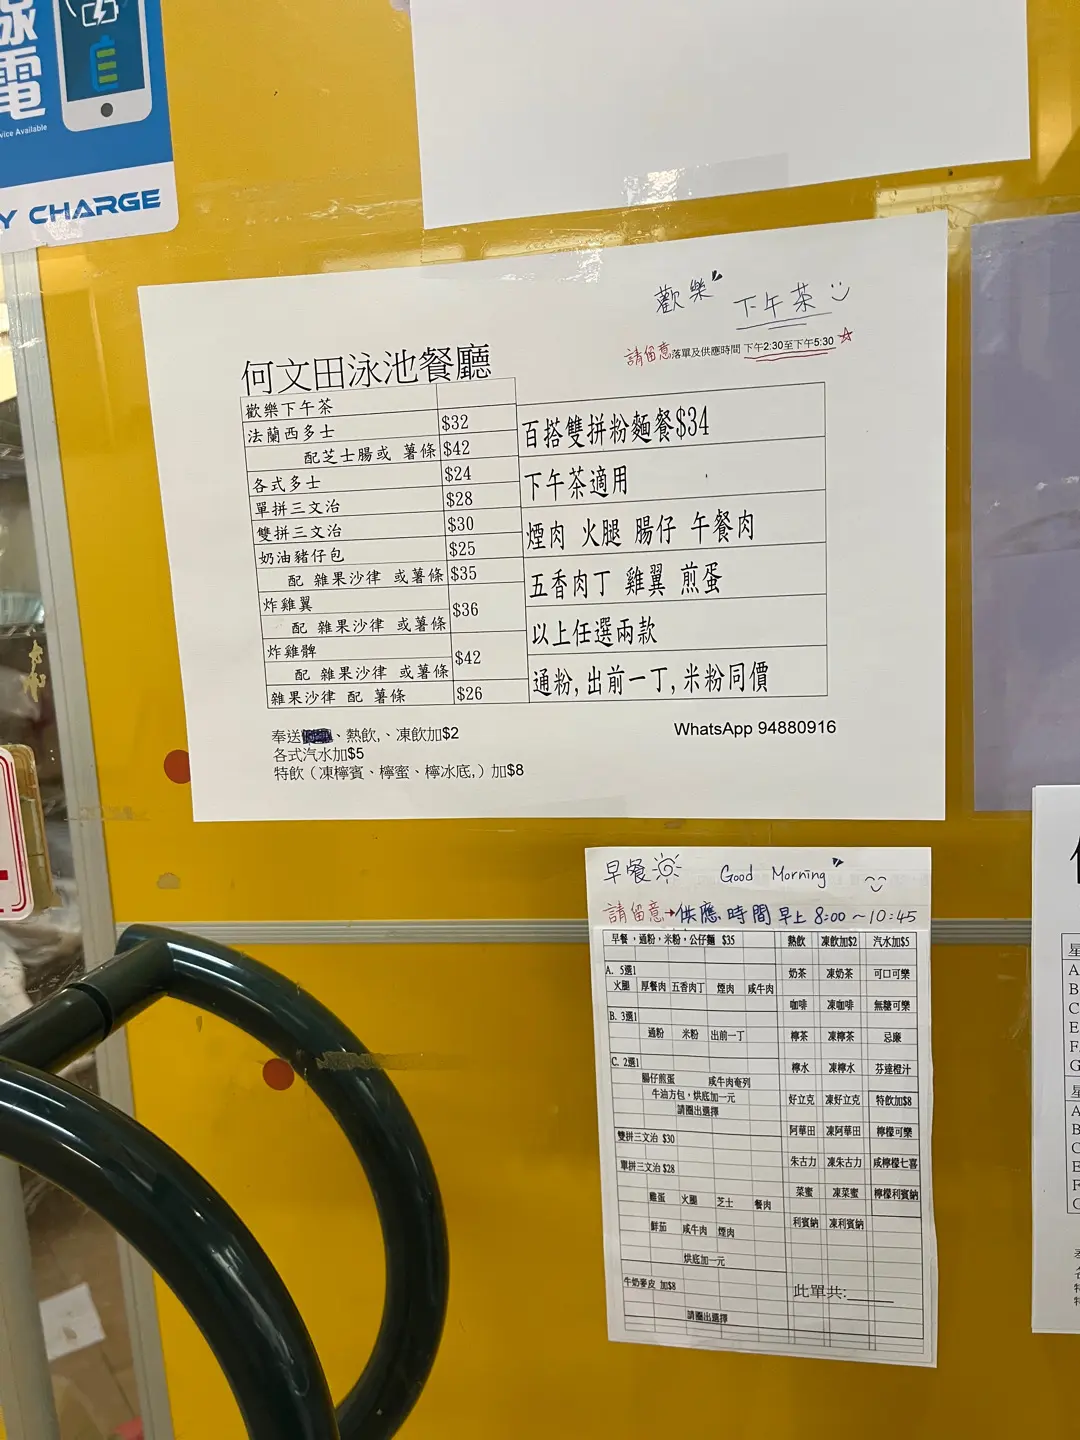 線
電
vice Available
Y CHARGE
歡樂
下午茶
請留意落單及供應時間 下午2:30至下午5:30
何文田泳池餐廳
歡樂下午茶
法蘭西多士 $32
配芝士腸或 薯條 $42
各式多士 $24
單拼三文治 $28
雙拼三文治 $30
奶油豬仔包 $25
配 雜果沙律 或薯條 $35
炸雞翼 $36
配 雜果沙律 或薯條
炸雞髀 $42
配 雜果沙律 或薯條
雜果沙律 配 薯條 $26
百搭雙拼粉麵餐$34
下午茶適用
煙肉 火腿 腸仔 午餐肉
五香肉丁 雞翼 煎蛋
以上任選兩款
通粉, 出前一丁, 米粉同價
奉送、熱飲,、凍飲加$2
各式汽水加$5
特飲（凍檸賓、檸蜜、檸冰底,）加$8
WhatsApp 94880916
早餐 Good Morning
請留意→供應時間 早上 8:00 ~ 10:45
早餐，通粉，米粉，公仔麵 $35 熱飲 凍飲加$2 汽水加$5
A. 5選1 奶茶 凍奶茶 可口可樂
火腿 厚餐肉 五香肉丁 煙肉 咸牛肉
咖啡 凍咖啡 無糖可樂
B. 3選1
通粉 米粉 出前一丁 檸茶 凍檸茶 忌廉
C. 2選1 檸水 凍檸水 芬達橙汁
腸仔煎蛋 咸牛肉奄列
牛油方包，烘底加一元 好立克 凍好立克 特飲加$8
請圈出選擇
雙拼三文治 $30 阿華田 凍阿華田 檸檬可樂
單拼三文治 $28 朱古力 凍朱古力 咸檸檬七喜
雞蛋 火腿 芝士 餐肉 菜蜜 凍菜蜜 檸檬利賓納
鮮茄 咸牛肉 煙肉 利賓納 凍利賓納
烘底加一元
牛奶麥皮 加$8 此單共:______
請圈出選擇
星
A
B
C
E
F
G
星
A
B
C
E
F